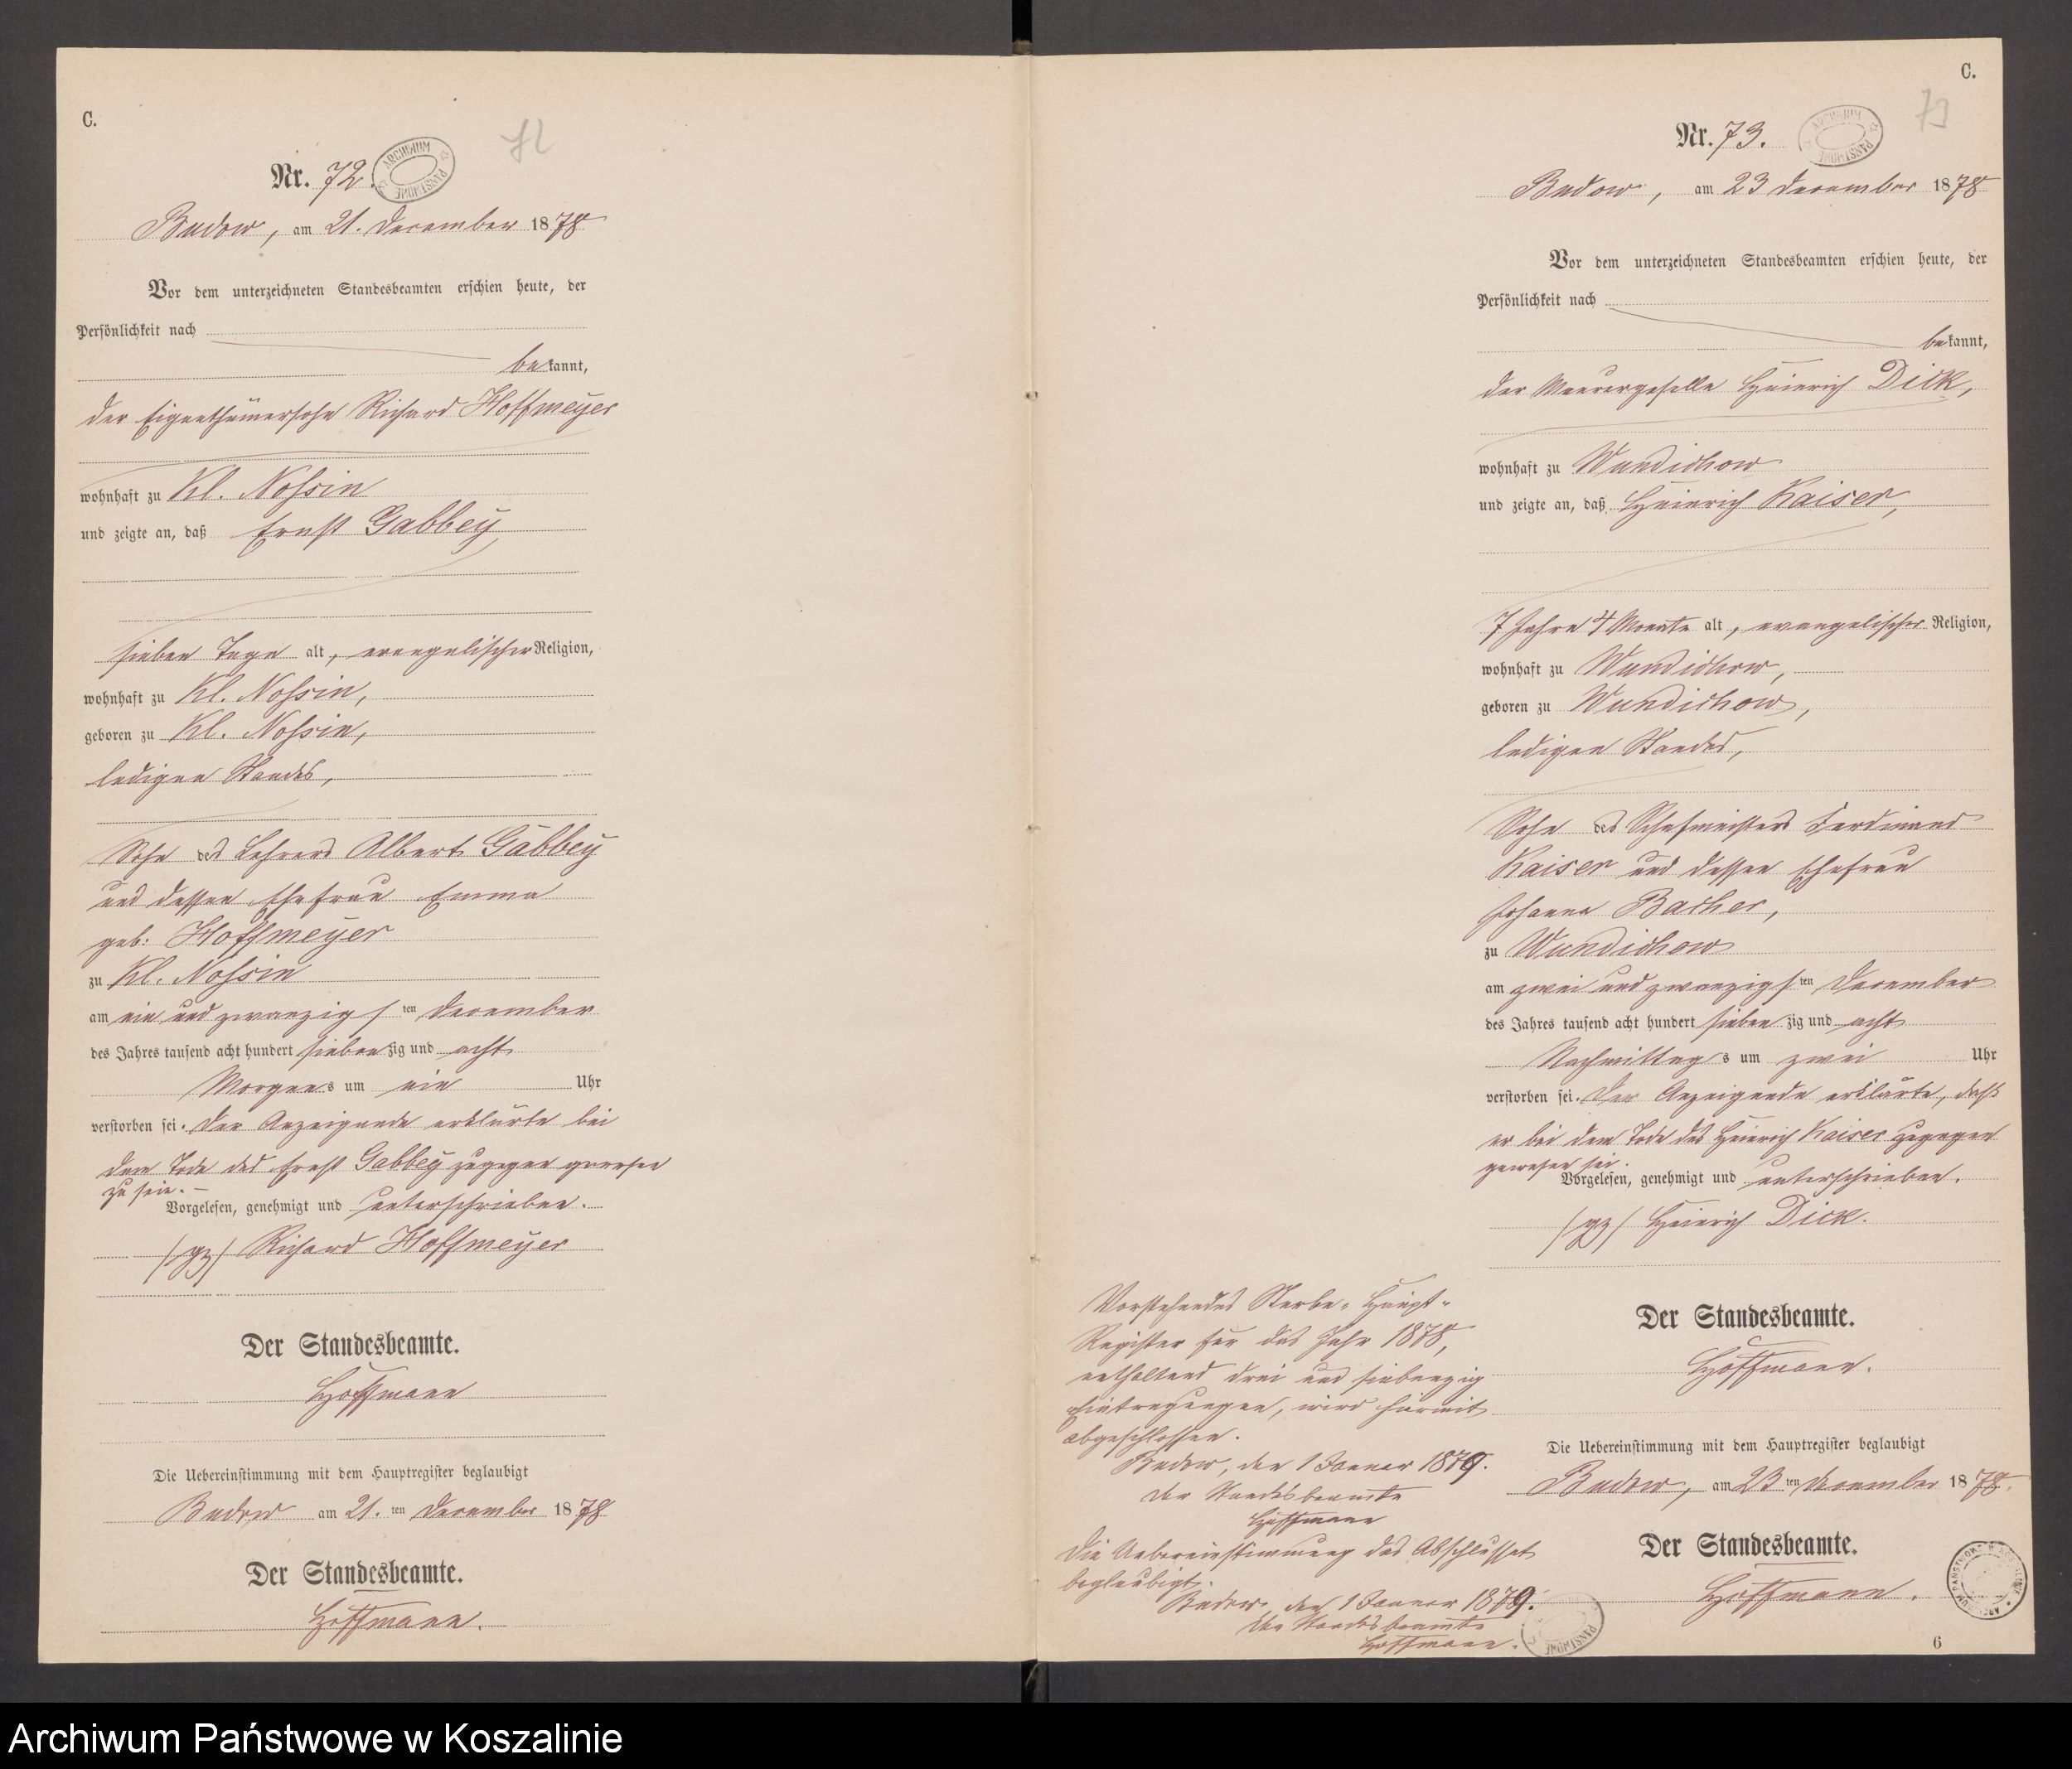 C.
72
Nr. 72.
ARCHIWUM PAŃSTWOWE
Budow, am 21. December 1878
Vor dem unterzeichneten Standesbeamten erschien heute, der
Persönlichkeit nach
bekannt,
der Eigenthümersohn Richard Hoffmeyer
wohnhaft zu Kl. Nossin
und zeigte an, daß Ernst Gabbey
sieben Tage alt, evangelischer Religion,
wohnhaft zu Kl. Nossin,
geboren zu Kl. Nossin,
ledigen Standes,
Sohn des Lehrers Albert Gabbey
und dessen Ehefrau Emma
geb: Hoffmeyer
zu Kl. Nossin
am ein und zwanzigsten December
des Jahres tausend acht hundert siebenzig und acht
Morgens um ein Uhr
verstorben sei. Der Anzeigende erklärte bei
dem Tode des Ernst Gabbey zugegen gewesen
zu sein. –
Vorgelesen, genehmigt und unterschrieben.
(gz) Richard Hoffmeyer
Der Standesbeamte.
Hoffmann
Die Uebereinstimmung mit dem Hauptregister beglaubigt
Budow am 21.ten December 1878
Der Standesbeamte.
Hoffmann.
C.
73
Nr. 73.
ARCHIWUM PAŃSTWOWE
Budow, am 23 December 1878
Vor dem unterzeichneten Standesbeamten erschien heute, der
Persönlichkeit nach
bekannt,
der Maurergeselle Heinrich Dick,
wohnhaft zu Wundichow
und zeigte an, daß Heinrich Kaiser,
7 Jahre 4 Monate alt, evangelischer Religion,
wohnhaft zu Wundichow,
geboren zu Wundichow,
ledigen Standes,
Sohn des Schafmeisters Ferdinand
Kaiser und dessen Ehefrau
Johanna Bacher,
zu Wundichow
am zwei und zwanzigsten December
des Jahres tausend acht hundert siebenzig und acht
Nachmittags um zwei Uhr
verstorben sei. Der Anzeigende erklärte, daß
er bei dem Tode des Heinrich Kaiser zugegen
gewesen sei.
Vorgelesen, genehmigt und unterschrieben.
(gz) Heinrich Dick.
Der Standesbeamte.
Hoffmann.
Die Uebereinstimmung mit dem Hauptregister beglaubigt
Budow, am 23ten December 1878.
Der Standesbeamte.
Hoffmann.
6
Vorstehendes Sterbe-Haupt-
Register für das Jahr 1878,
enthaltend drei und siebenzig
Eintragungen, wird hiermit
abgeschlossen.
Budow, den 1 Januar 1879.
Der Standesbeamte
Hoffmann
Die Uebereinstimmung des Abschlusses
beglaubigt.
Budow den 1 Januar 1879.
Der Standesbeamte
Hoffmann.
Archiwum Państwowe w Koszalinie